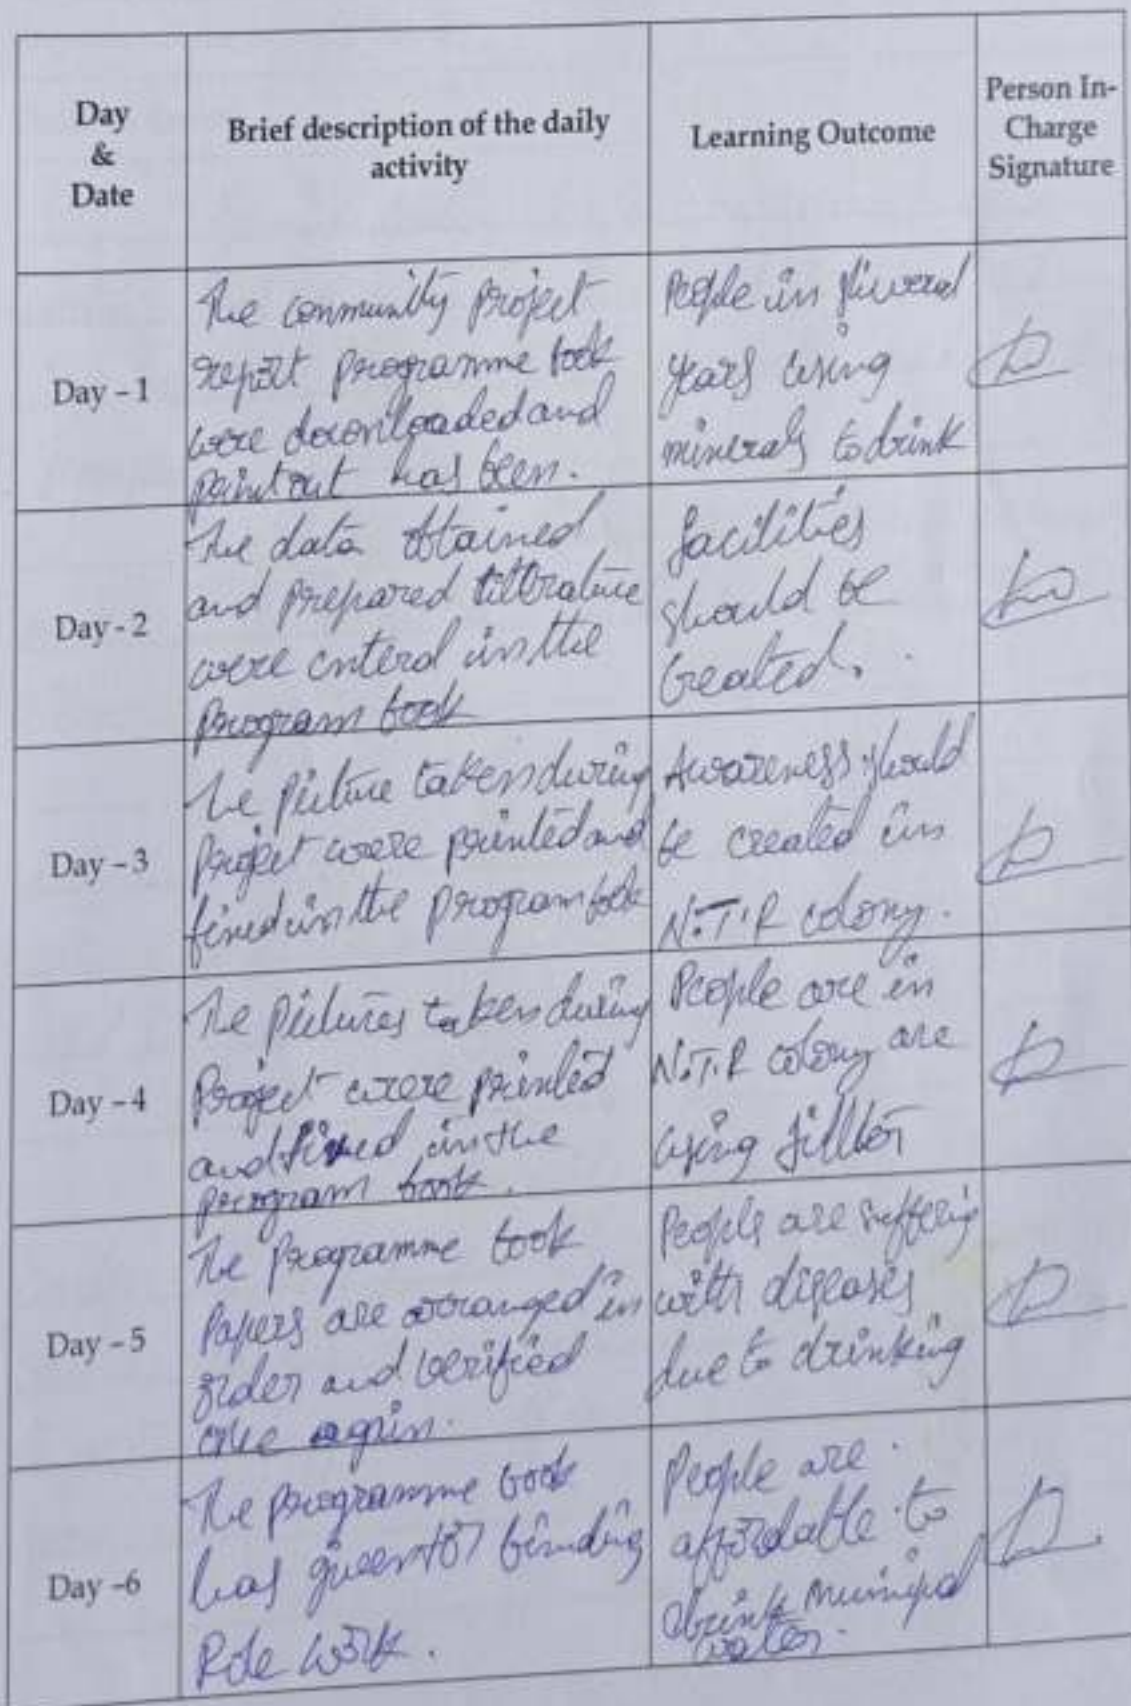 Day
&
Date
Brief description of the daily
activity
Learning Outcome
Person In-
Charge
Signature
Day - 1
The community project
report programme book
were downloaded and
paintout has been.
People in
years using
minerals to drink
Day - 2
The data obtained
and prepared
were enterd in the
program book
facilities
should be
created.
Day - 3
The picture taken during
project were printed and
fixed in the program book
Awareness should
be created in
N.T.R colony.
Day - 4
The pictures taken during
Project were printed
and fixed in the
program book.
People are in
N.T.R colony are
using
Day - 5
The Programme book
Papers are arranged in
order and verified
again.
People are suffering
with diseases
due to drinking
Day -6
The programme book
has given for binding
work.
People are
affordable to
drink
water.